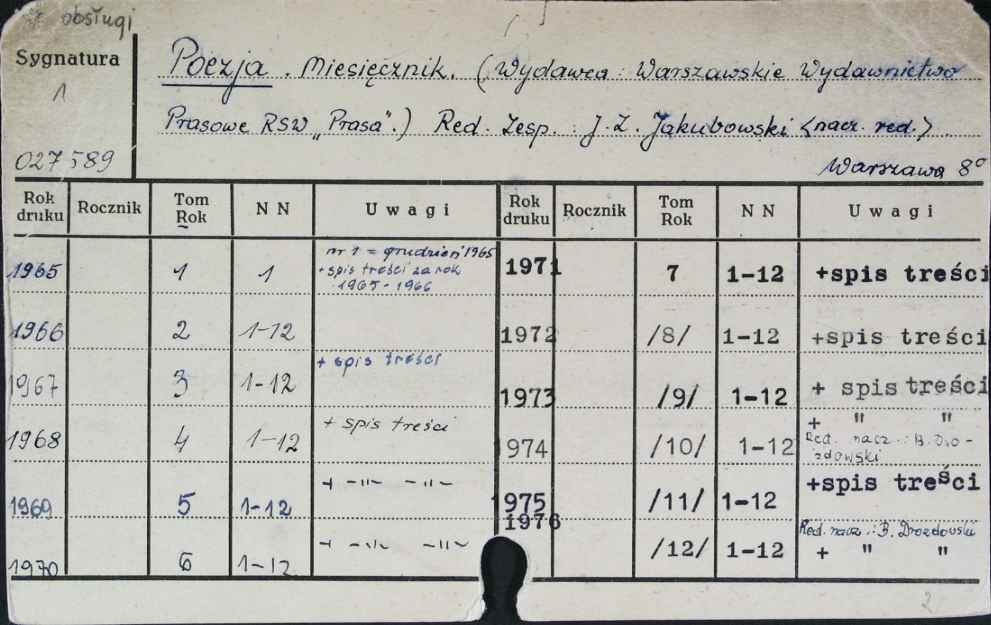 obsługi
Sygnatura
1
027589
Poezja. Miesięcznik. (Wydawca: Warszawskie Wydawnictwo
Prasowe RSW „Prasa".) Red. Zesp.: J. Z. Jakubowski <nacz. red.>.
Warszawa 8°
Rok druku Rocznik Tom Rok NN Uwagi Rok druku Rocznik Tom Rok NN Uwagi
1965 1 1 nr 1 = grudzień 1965
+ spis treści za rok
1965-1966
1971 7 1-12 +spis treści
1966 2 1-12
1972 /8/ 1-12 +spis treści
1967 3 1-12 + spis treści
1973 /9/ 1-12 + spis treści
1968 4 1-12 + spis treści
1974 /10/ 1-12 + " "
Red. nacz.: B. Dro-
zdowski
1969 5 1-12 + -"- -"-
1975 /11/ 1-12 +spis treści
1970 6 1-12 + -"- -"-
1976 /12/ 1-12 Red. nacz.: B. Drozdowski
+ " "
2